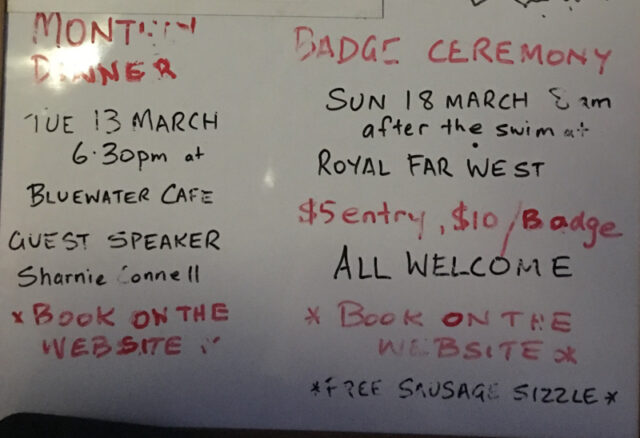 MONTHLY
DINNER
TUE 13 MARCH
6.30pm at
BLUEWATER CAFE
GUEST SPEAKER
Sharnie Connell
* BOOK ON THE
WEBSITE
BADGE CEREMONY
SUN 18 MARCH 8am
after the swim at
ROYAL FAR WEST
$5 entry, $10/Badge
ALL WELCOME
* BOOK ON THE
WEBSITE *
*FREE SAUSAGE SIZZLE*